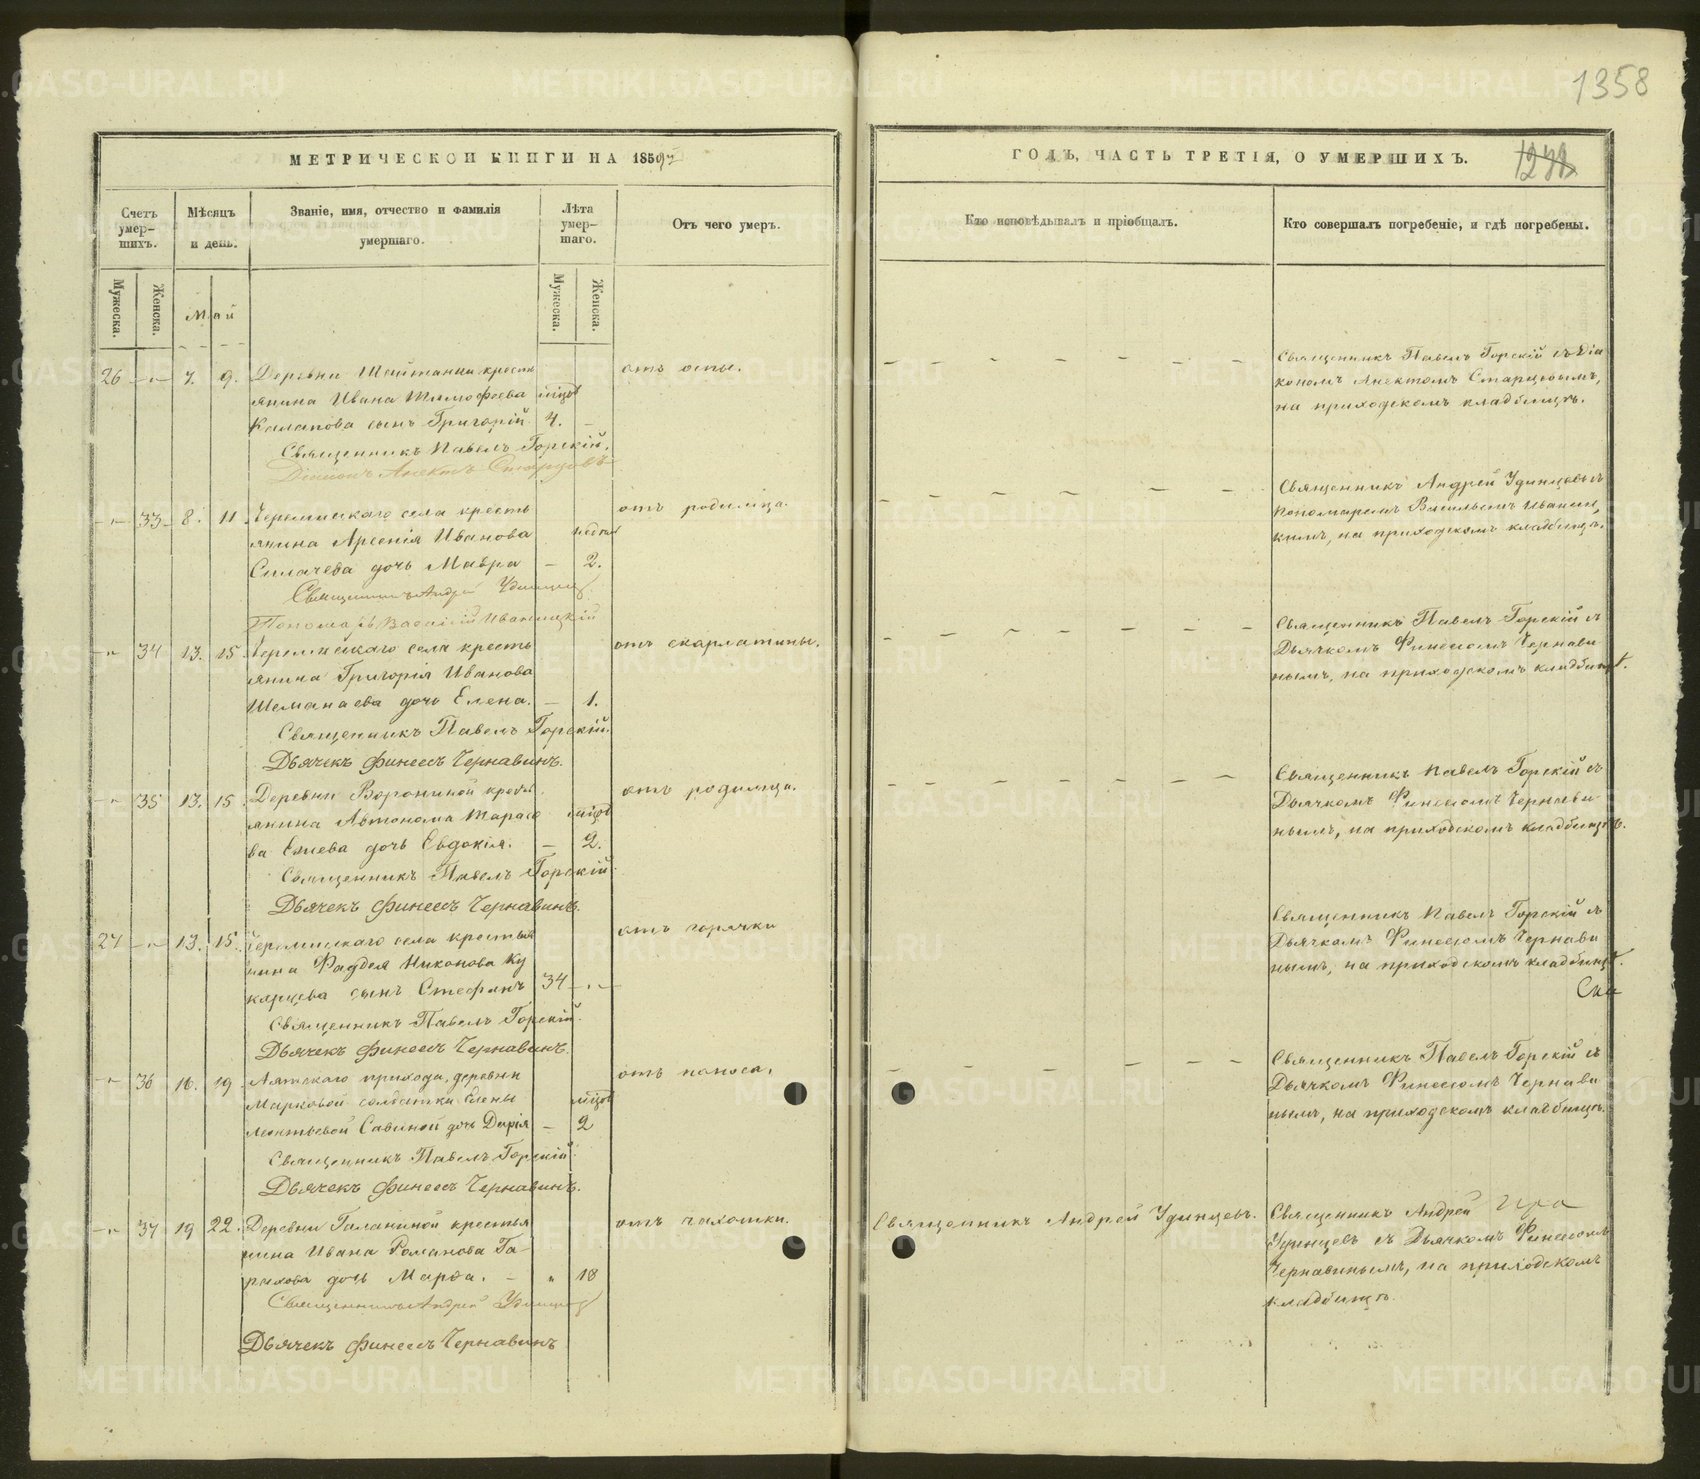 1358
МЕТРИЧЕСКОЙ КНИГИ НА 1859
ГОДЪ, ЧАСТЬ ТРЕТІЯ, О УМЕРШИХЪ.
Счетъ умер-шихъ.
Мѣсяцъ и день.
Званіе, имя, отчество и фамилія умершаго.
Лѣта умер-шаго.
Отъ чего умеръ.
Кто исповѣдывалъ и пріобщалъ.
Кто совершалъ погребеніе, и гдѣ погребены.
Мужеска.
Женска.
Май
Мужеска.
Женска.
26 - „ - 7. 9. Деревни Шайтанки кресть
янина Ивана Тимофеева міцов
Калапова сынъ Григорій 4. -
Священникъ Павелъ Горскій.
Діаконъ Анектъ Старцовъ
отъ оспы.
Священникъ Павелъ Горскій съ Діа
кономъ Анектомъ Старцовымъ,
на приходскомъ кладбищѣ.
- „ - 33 8. 11 Черемисскаго села кресть
янина Арсенія Иванова недѣл
Силачева дочь Мавра - 2.
Священникъ Андрей Удинцев
Пономарь Василій Иваницкій
отъ родимца.
Священникъ Андрей Удинцевъ съ
Пономаремъ Васильемъ Иваниц
кимъ, на приходскомъ кладбищѣ.
- „ - 34 13. 15 Черемисскаго села кресть
янина Григорія Иванова
Шеманаева дочь Елена. - 1.
Священникъ Павелъ Горскій.
Дьячекъ Финеесъ Чернавинъ.
отъ скарлатины.
Священникъ Павелъ Горскій съ
Дьячкомъ Финеесомъ Чернави
нымъ, на приходскомъ кладбищѣ.
- „ - 35 13. 15 Деревни Ворониной кресть
янина Автонома Тарасо міцов
ва Ежева дочь Евдокія. - 2.
Священникъ Павелъ Горскій.
Дьячекъ Финеесъ Чернавинъ.
отъ родимца.
Священникъ Павелъ Горскій съ
Дьячкомъ Финеесомъ Чернави
нымъ, на приходскомъ кладбищѣ.
27 - „ - 13. 15. Черемисскаго села крестья
нина Фаддея Никонова Ку
карцева сынъ Стефанъ 34 - „ -
Священникъ Павелъ Горскій.
Дьячекъ Финеесъ Чернавинъ.
отъ горячки
Священникъ Павелъ Горскій съ
Дьячкомъ Финеесомъ Чернави
нымъ, на приходскомъ кладбищѣ.
- „ - 36 16. 19. прихода, деревни
Марковой солдатки Елены міцов
Леонтьевой Савиной дочь Дарія - 2
Священникъ Павелъ Горскій.
Дьячекъ Финеесъ Чернавинъ.
отъ поноса.
Священникъ Павелъ Горскій съ
Дьячкомъ Финеесомъ Чернави
нымъ, на приходскомъ кладбищѣ.
- „ - 37 19 22. Деревни Галаниной крестья
нина Ивана Романова Го-
рохова дочь Марфа. - „ 18
Священникъ Андрей Удинцов
Дьячекъ Финеесъ Чернавинъ
отъ чахотки.
Священникъ Андрей Удинцевъ.
Священникъ Андрей
Удинцевъ съ Дьячкомъ Финеесомъ
Чернавинымъ, на приходскомъ
кладбищѣ.
METRIKI.GASO-URAL.RU